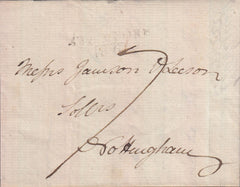 Messrs Jamson & Leeson
Sollrs
Nottingham